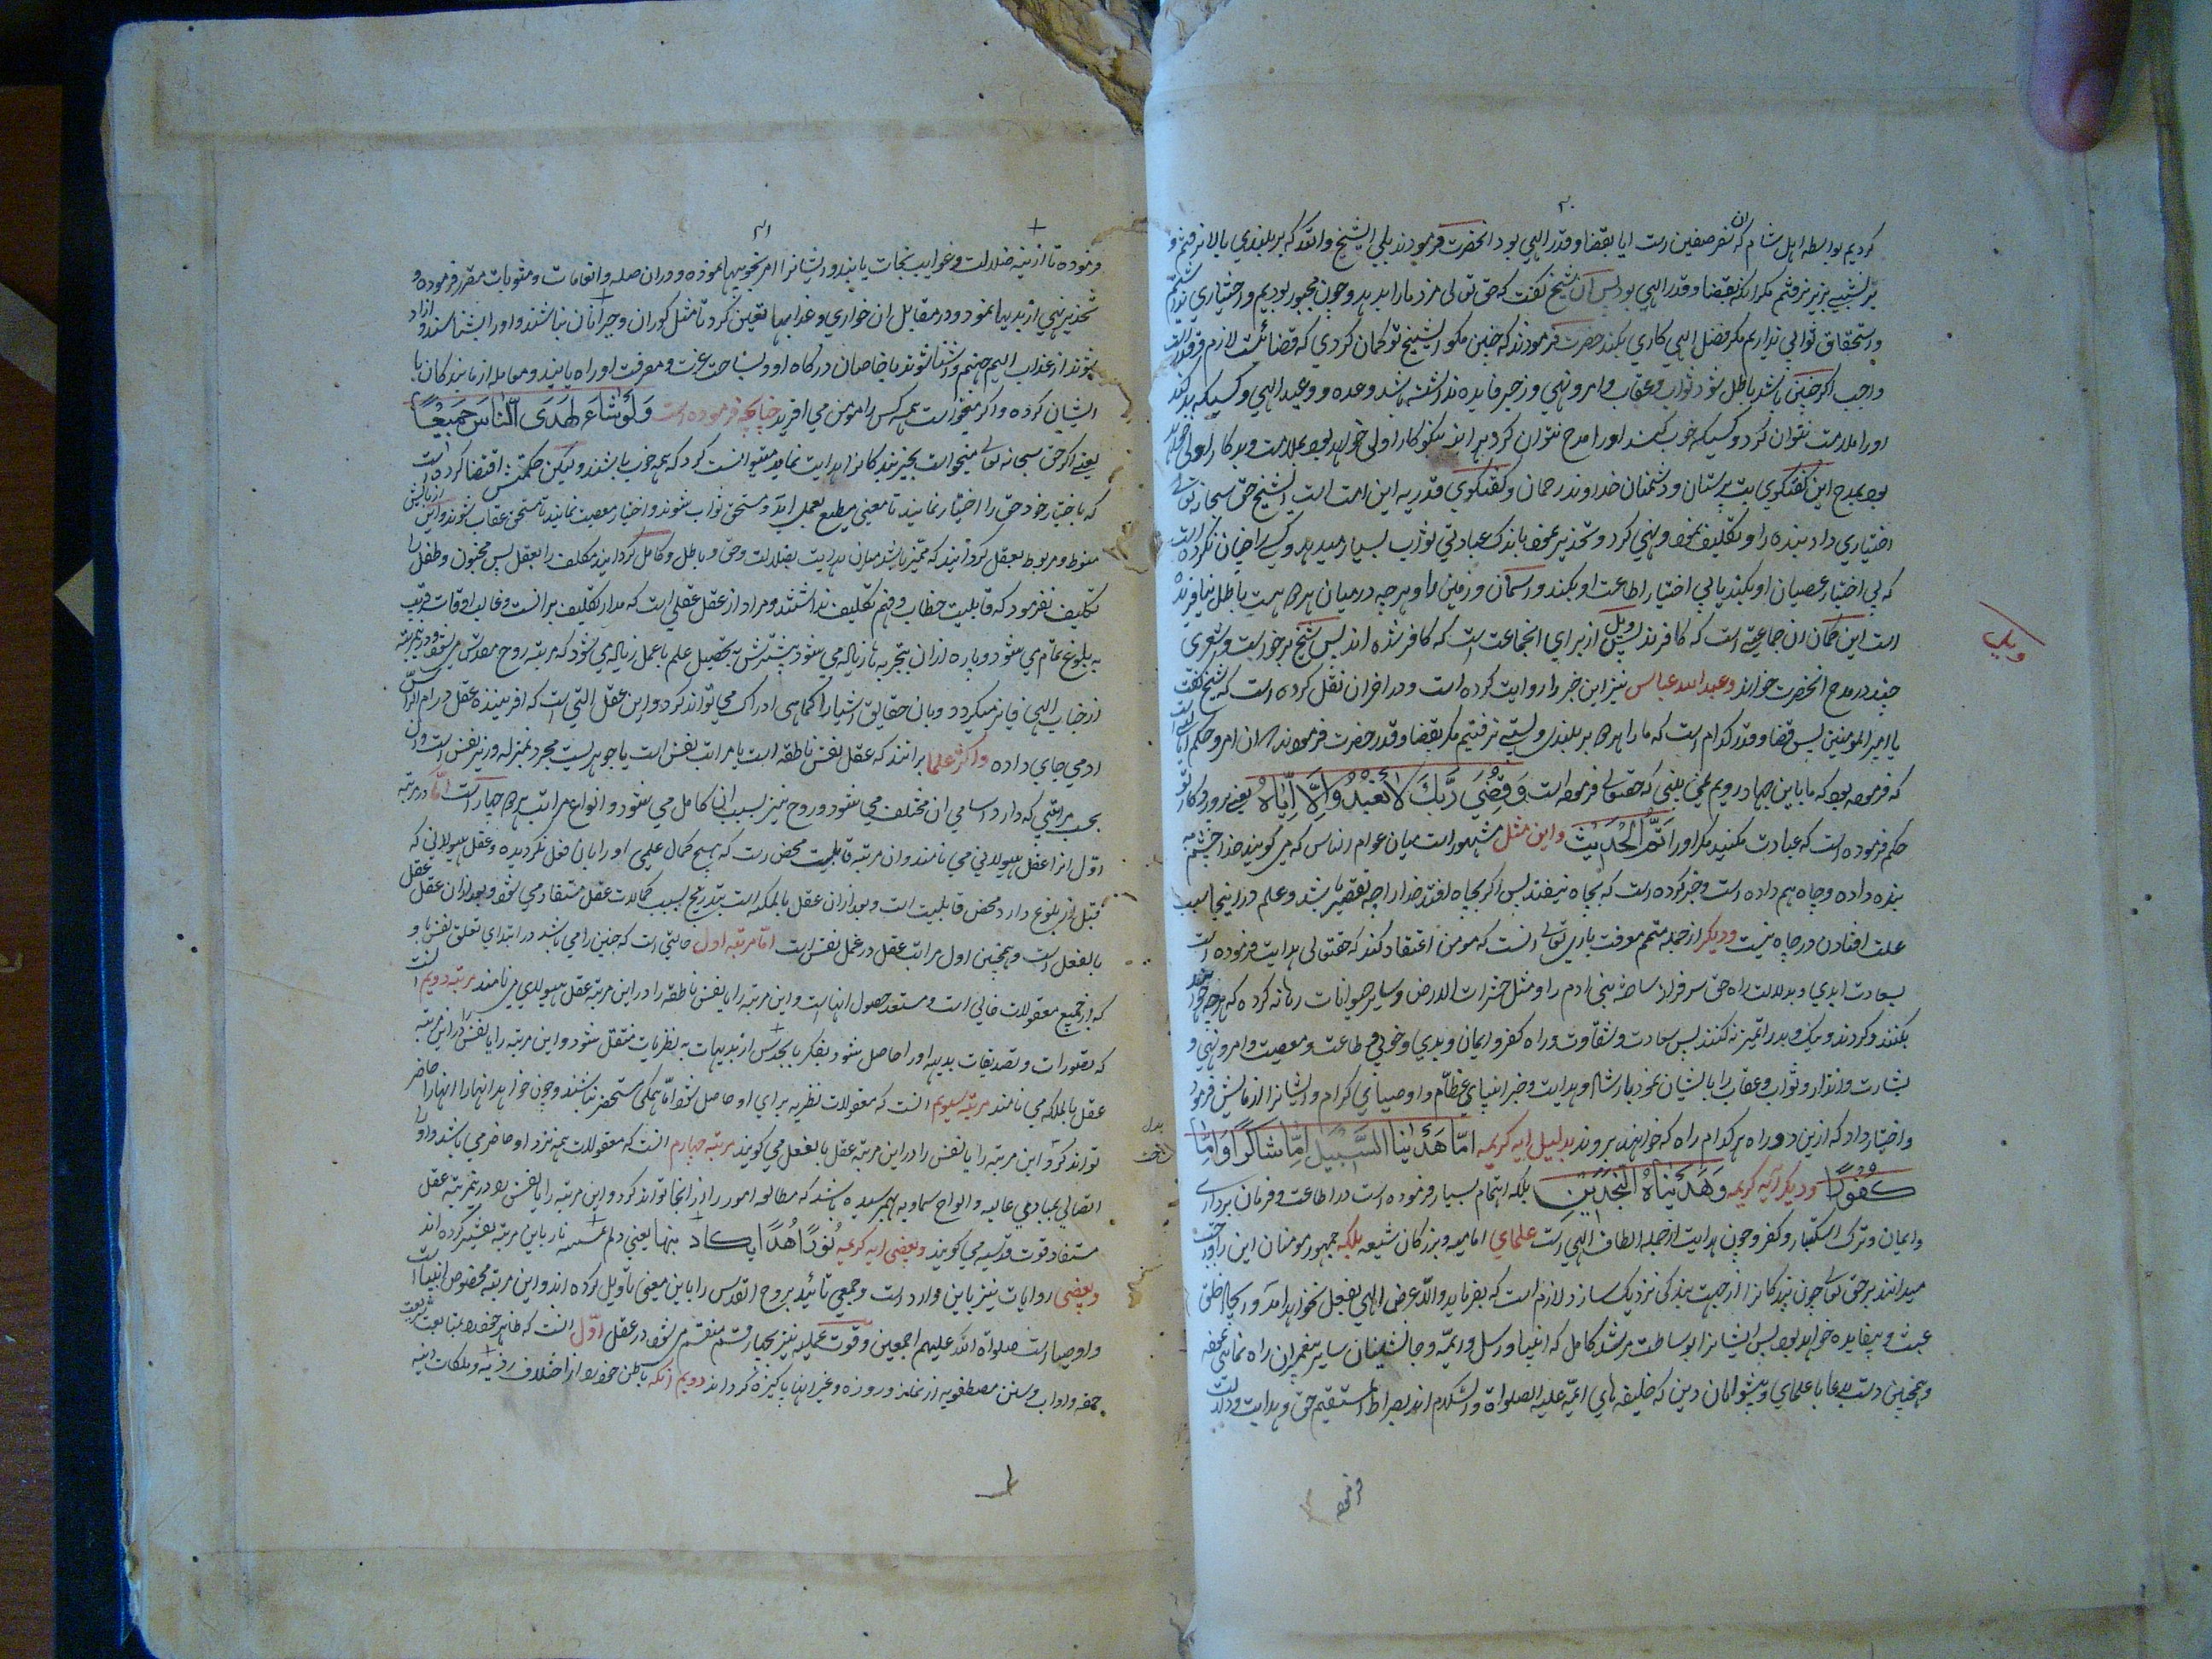 کردیم بواسطه اهل شام که آن سفر صفین است ایا بقضا و قدر الهی بود انحضرت فرمودند بلی ای شیخ والله که بر بلندی بالا نرفتم و
بر نشیبی بزیر نرفتم مکر انکه بقضا و قدر الهی بود پس ان شیخ کفت که حق تعالی مزد ما را بدهد و چون مجبور بودیم و اختیاری نداشتیم
و استحقاق ثوابی نداریم مکر فضل الهی کاری بکند حضرت فرمودند که چنین مکو ای شیخ تو کمان کردی که قضائیست لازم و قدریست
واجب اکر چنین باشد باطل شود ثواب و عقاب و امر و نهی و زجر فایده نداشته باشد وعده و وعید الهی و کسیکه بد کند
اورا ملامت نتوان کرد و کسیکه خوب کند اورا مدح نتوان کرد هر اینه نیکوکار اولی خواهد بود بملامت و بدکار اولی خواهد
بود بمدح این کفتکوی بت پرستان و دشمنان خداوند رحمان و کفتکوی قدریه این امت است ای شیخ حق سبحانه تعالی
اختیاری داد بنده را و تکلیف نمود و نهی کرد و تحذیر نمود باندک عبادتی ثواب بسیار میدهد و کسی را چنان نکرده است
که بی اختیار عصیان او بکند یا بی اختیار اطاعت او بکند و اسمان و زمین را و هرچه درمیان هردو هست باطل نیافریده
است این کمان ان جماعتی است که کافرند پس ویل از برای انجماعت است که کافر شده اند پس شیخ برخواست و شعری
چند در مدح انحضرت خواند وعبدالله عباس نیز این خبر را روایت کرده است و در اخر ان نقل کرده است که شیخ کفت
یا امیر المومنین پس قضا و قدر کدام است که ما را هردو بر بلندی و پستی نرفتیم مکر بقضا و قدر حضرت فرمودند ان امر و حکم الهی است
که فرموده بود که ما باین جهاد رویم نمی بینی که حقتعالی فرموده است وَقَضٰی رَبُّکَ اَلّٰا تَعْبُدُوا اِلَّا اِیَّاهُ یعنی پروردکار تو
حکم فرموده است که عبادت مکنید مکر اورا تَمَّ الْحَدِیْثُ واین مثل مشهور است میان عوام الناس که می کویند خدا چشم به
بنده داده و چاه هم داده است و خبر کرده است که بچاه نیفتد پس اکر بچاه افتد خدا را چه تقصیر باشد و علم در اینجا سبب
علت افتادن در چاه نیست ودیکر از جمله متمم معرفت باری تعالی انست که مومن اعتقاد کند که حقتعالی هدایت فرموده است
بسعادت ابدی و بدلالت راه حق سرفراز ساخته بنی ادم را و مثل حشرات الارض و سایر حیوانات رها نه کرده که هرچه خواهند
بکنند و کردند و نیک و بد را تمیز نه کنند پس سعادت و شقاوت و راه کفر و ایمان و بدی و خوبی و طاعت و معصیت و امر و نهی و
بشارت و انذار و ثواب و عقاب را بایشان نمود بارشاد و هدایت و خبر انبیای عظام و اوصیای کرام و ایشانرا ازمایش فرمود
و اختیار داد که ازین دو راه هر کدام راه که خواهند بروند بدلیل ایه کریمه اِمَّا هَدَیْنَا السَّبِیْلَ اِمَّا شَاکِرًا وَاِمَّا
کَفُوْرًا ودیکر ایه کریمه وَهَدَیْنَاهُ النَّجْدَیْنِ بلکه اهتمام بسیار فرموده است در اطاعت و فرمان برداری
و ایمان و ترک استکبار و کفر و چون هدایت از جمله الطاف الهی است علمای امامیه و بزرکان شیعه بلکه جمهور مومنان این را واجب
میدانند بر حق تعالی چون بندکانرا از جهت بندکی نزدیک سازد لازم است که بفرماید والا غرض الهی بفعل نخواهد امد و ایجاد خلق
عبث و بیفایده خواهد بود پس ایشانرا بوساطت مرشد کامل که انبیا و رسل و ائمه و جانشینان سایر پیغمبران راه نمائی نموده
و همچنین دست بدعا با علمای و پیشوایان دین که خلیفه های ائمه علیه الصلواة والسلام اند بصراط المستقیم حق و هدایت و دلالت
فرموده
ویل
۳۰
۳۱
فرموده تا از تیه ضلالت و غوایت نجات یابند و ایشانرا امر بخوبیها نموده و دران صله و انعامات و مثوبات مقرر فرموده و
تحذیر نهی از بدیها نمود و در مقابل ان خواری و عذابها تعین کرد تا مثل کوران و حیرانان نباشند و اورا بشناسند و ازاد
شوند از عذاب الیم جهنم و اشنا شوند با خاصان درکاه او و بساحت عزت و معرفت او راه یابند و معامله از مانند کان با
ایشان کرده و اکر میخواست همه کس را مومن می افرید چنانچه فرموده است وَلَوْ شَاءَ لَهَدَی النَّاسَ جَمِیْعًا
یعنی اکر حق سبحانه تعالی میخواست بجبر بندکانرا هدایت نماید میتوانست کرد که همه خوب باشند ولیکن حکمتش اقتضا کرده است
که باختیار خود حق را اختیار نمایند تا معنی مطیع بعمل اید و مستحق ثواب شوند و اختیار معصیت نمایند تا مستحق عقاب شوند و این ازمایش
منوط و مربوط بعقل کردانید که تمیز باشد میان هدایت بضلالت و حق و باطل و کامل کردانید مکلف را بعقل پس مجنون و طفل را
تکلیف نفرمود که قابلیت خطاب و فهم تکلیف نداشتند و مراد از عقل عقلی است که مدار تکلیف برانست و غالب اوقات قریب
به بلوغ تمام می شود و پاره ازان بتجربه ها زیاله می شود و بیشترش بتحصیل علم با عمل زیاله می شود که مرتبه روح مقدس می شود و در نهم مرتبه
از جناب الهی فایز میکردد و بان حقایق اشیا را کماهی ادراک می تواند کرد و این عقل التی است که افریننده عقل در ام الراس
ادمی جای داده واکثر علما برانند که عقل نفس ناطقه است یا مراتب نفس است یا جوهریست مجرد بمنزله وزیر نفس است و ان
بحسب مراتبی که دارد اسامی ان مختلف می شود و روح نیز بسبب انها کامل می شود و انواع مراتب هردو چهار است امّا در مرتبه
اول انرا عقل هیولانی می نامند و ان مرتبه قابلیت محض است که هیچ کمال علمی او را بان فعل نکردیده و عقل هیولانی که
قبل از بلوغ دارد محض قابلیت است و بعد ازان عقل بالملکه است بتدریج بسبب کمالات عقل مستفاد می شود و بعد ازان عقل
بالفعل است و همچنین اول مراتب عقل در عمل نفس است امّا مرتبه اول حالتی است که جنین را می باشد در ابتدای تعلق نفس باو
که از جمیع معقولات خالی است و مستعد حصول انهاست و این مرتبه را یا نفس ناطقه را در این مرتبه عقل هیولای می نامند مرتبه دویم انست
که تصورات و تصدیقات بدیهه اورا حاصل شود بفکر یا بحدس از بدیهات به نظریات منتقل شود و این مرتبه را یا نفس را در این مرتبه
عقل بالملکه می نامند مرتبه سیوم انست که معقولات نظریه برای او حاصل شود امّا همکی مستحضر نباشند و چون خواهد انها را حاضر
تواند کرد و این مرتبه را یا نفس را در این مرتبه عقل بالفعل می کویند مرتبه چهارم انست که معقولات همه نزد او حاضر می باشد و او را
اتصالی بمبادی عالیه و الواح سماویه بهم رسیده باشد که مطالعه امور را از انجا تواند کرد و این مرتبه را یا نفس را در ین مرتبه عقل
مستفاد و قوت قدسیه می کویند وبعضی ایه کریمه نُوْرًا هُدًا یَکَادُ زیتها یعنی ولم تمسسه نار باین مرتبه تفسیر کرده اند
وبعضی روایات نیز باین وارد است و جمعی تائید بروح القدس را باین معنی تاویل کرده اند و این مرتبه مخصوص انبیا است
و اوصیا است صلواة الله علیهم اجمعین و قوت عملیه نیز بچهار قسم منقسم می شود در عقل اوّل انست که ظاهر خود را بمتابعت شریعت
حقه و اداب و سنن مصطفویه از نماز و روزه و غیر انها پاکیزه کرداند دویم انکه باطن خود را از اخلاق رذیه و ملکات دنیه